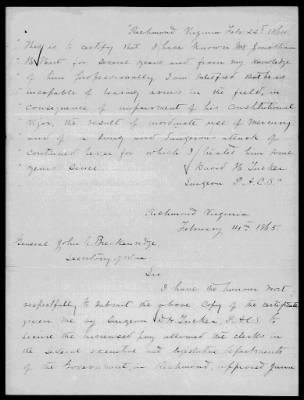 "Richmond Virginia Feb 22d 1864.
"This is to certify that I have known Mr Jonathan
"B. for several years and from my knowledge
"of him professionally I am satisfied that he is
"incapable of bearing arms in the field, in
"consequence of impairment of his Constitutional
"Vigor, the result of use of Mercury
"and of a long and dangerous attack of
"continued fever for which I treated him some
"years since.
David H Tucker
Surgeon P.A.C.S."
Richmond Virginia
February 14th 1865.
General John C Breckenridge,
Secretary of War
Sir
I have the honour most
respectfully to submit the above copy of the certificate
given me by Surgeon D H Tucker, P.A.C.S. to
secure the increased pay allowed the clerks in
the several executive and legislative departments
of the Government, in Richmond, approved June